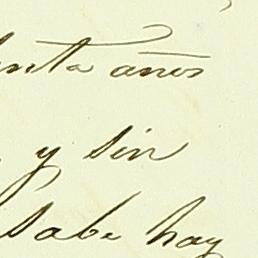 enta años
y sin
sabe hay